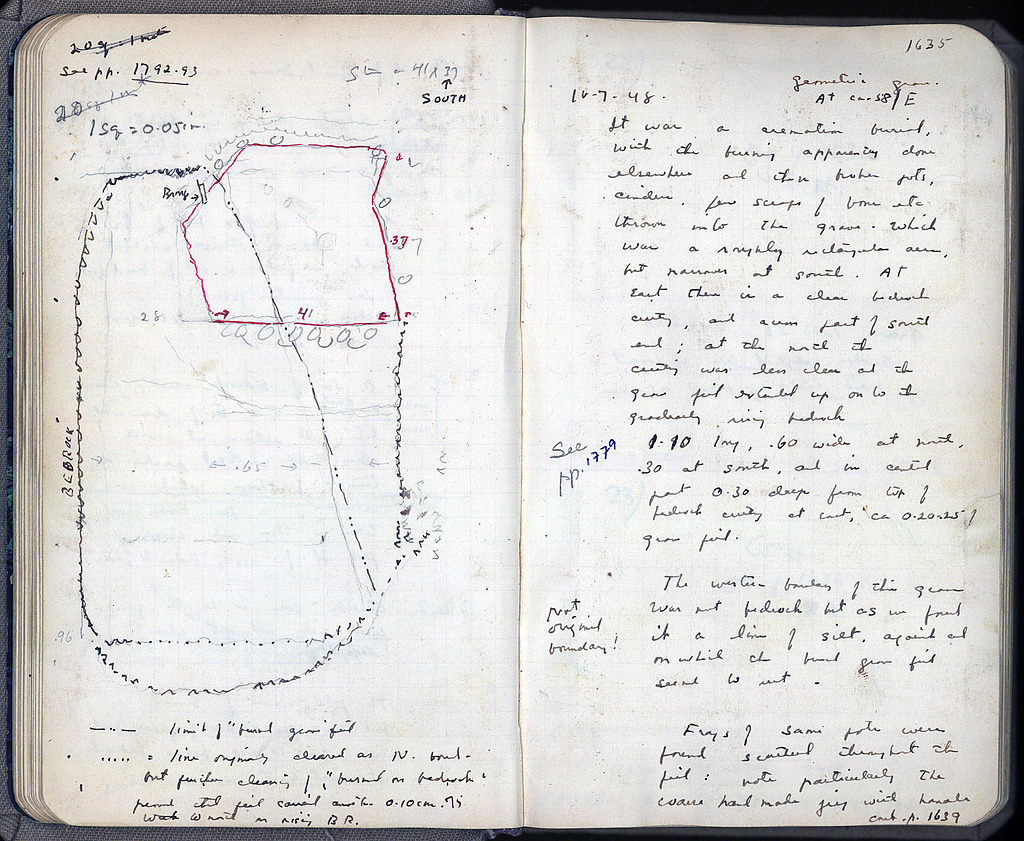 20 sq = 1 m
See pp. 1792-93
41 x 37
↑
SOUTH
20 sq / m
1 Sq = 0.05 m.
Bronze →
37
28
41
BEDROCK
.65
.96
—··— limit of "burnt grave fill
..... = line originally cleared as N. bound-
but further cleaning of "burned on bedrock"
proved that fill carried another 0.10 cm.
to north on rising B.R.
1635
Geometric grave.
10-7-48.
At ca. 58/E
It was a cremation burial,
with the burning apparently done
elsewhere and then broken pots,
cinders, few scraps of bone etc
thrown into the grave. Which
was a roughly rectangular area,
but narrows at south. At
East there is a clear bedrock
cutting, and across part of south
end; at the north the
cutting was less clear and the
grave fill extended up on to the
gradually rising bedrock
See
pp. 1779
1.10 long, .60 wide at north,
.30 at south, and in central
part 0.30 deep from top of
bedrock cutting at east, ca 0.20-25 of
grave fill.
The western boundary of the grave
was not bedrock but as we found
it a line of silt, against and
on which the burnt grave fill
seemed to rest.
not
original
boundary!
Frags of same pots were
found scattered throughout the
fill: note particularly the
coarse hand made jug with handle
cont. p. 1639